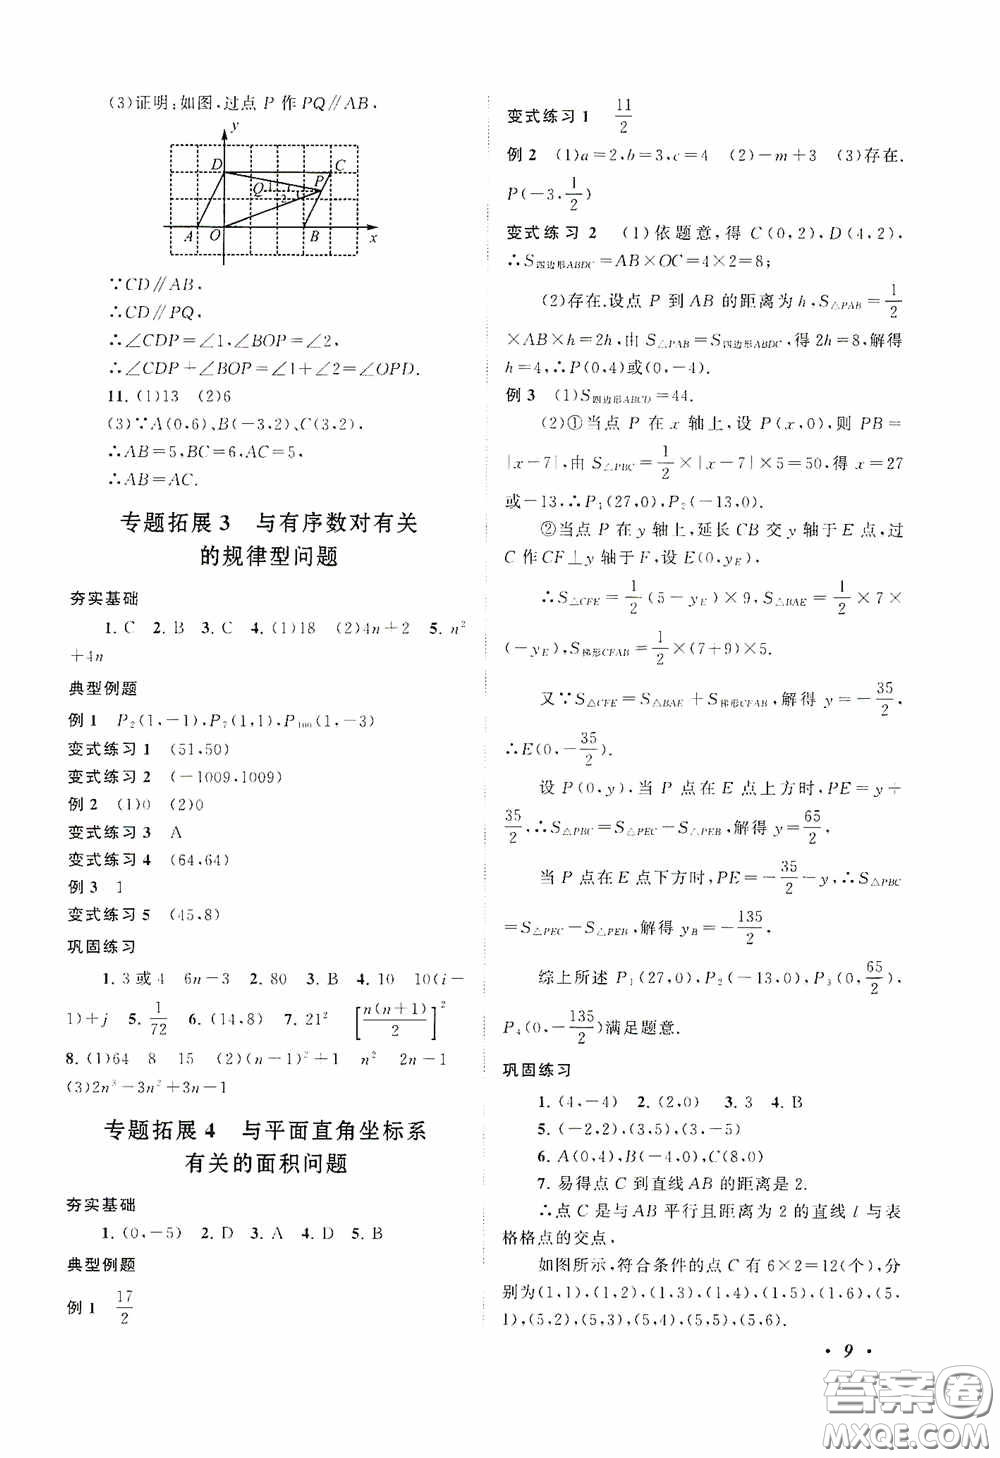 (3)证明:如图,过点 P 作 PQ∥AB,
y
D
C
Q
P
1
2
A
O
B
x
∵CD∥AB,
∴CD∥PQ,
∴∠CDP=∠1,∠BOP=∠2,
∴∠CDP+∠BOP=∠1+∠2=∠OPD.
11. (1)13 (2)6
(3)∵A(0,6),B(-3,2)、C(3,2),
∴AB=5,BC=6,AC=5,
∴AB=AC.
专题拓展 3 与有序数对有关
的规律型问题
夯实基础
1. C 2. B 3. C 4. (1)18 (2)4n+2 5. n²
+4n
典型例题
例 1 P₂(1,-1),P₇(1,1),P₁₀₀(1,-3)
变式练习 1 (51,50)
变式练习 2 (-1009,1009)
例 2 (1)0 (2)0
变式练习 3 A
变式练习 4 (64,64)
例 3 1
变式练习 5 (45,8)
巩固练习
1. 3 或 4 6n-3 2. 80 3. B 4. 10 10(i-
1)+j 5. 1/72 6. (14,8) 7. 21² [n(n+1)/2]²
8. (1)64 8 15 (2)(n-1)²+1 n² 2n-1
(3)2n³-3n²+3n-1
专题拓展 4 与平面直角坐标系
有关的面积问题
夯实基础
1. (0,-5) 2. D 3. A 4. D 5. B
典型例题
例 1 17/2
变式练习 1 11/2
例 2 (1)a=2,b=3,c=4 (2)-m+3 (3)存在.
P(-3,1/2)
变式练习 2 (1)依题意,得 C(0,2),D(4,2),
∴S四边形ABDC=AB×OC=4×2=8;
(2)存在.设点 P 到 AB 的距离为 h,S△PAB=1/2
×AB×h=2h,由 S△PAB=S四边形ABDC,得 2h=8,解得
h=4,∴P(0,4)或(0,-4).
例 3 (1)S四边形ABCD=44.
(2)①当点 P 在 x 轴上,设 P(x,0),则 PB=
|x-7|,由 S△PBC=1/2×|x-7|×5=50,得 x=27
或-13,∴P₁(27,0),P₂(-13,0).
②当点 P 在 y 轴上,延长 CB 交 y 轴于 E 点,过
C 作 CF⊥y 轴于 F,设 E(0,yE),
∴S△CFE=1/2(5-yE)×9,S△BAE=1/2×7×
(-yE),S梯形CFAB=1/2×(7+9)×5.
又∵S△CFE=S△BAE+S梯形CFAB,解得 y=-35/2,
∴E(0,-35/2).
设 P(0,y),当 P 点在 E 点上方时,PE=y+
35/2,∴S△PBC=S△PEC-S△PEB,解得 y=65/2;
当 P 点在 E 点下方时,PE=-35/2-y,∴S△PBC
=S△PEC-S△PEB,解得 yB=-135/2,
综上所述 P₁(27,0),P₂(-13,0),P₃(0,65/2),
P₄(0,-135/2)满足题意.
巩固练习
1. (4,-4) 2. (2,0) 3. 3 4. B
5. (-2,2),(3,5),(3,-5)
6. A(0,4),B(-4,0),C(8,0)
7. 易得点 C 到直线 AB 的距离是 2.
∴点 C 是与 AB 平行且距离为 2 的直线 l 与表
格格点的交点,
如图所示,符合条件的点 C 有 6×2=12(个),分
别为(1,1),(1,2),(1,3),(1,4),(1,5),(1,6),(5,
1),(5,2),(5,3),(5,4),(5,5),(5,6).
· 9 ·
答案圈
MXQE.COM